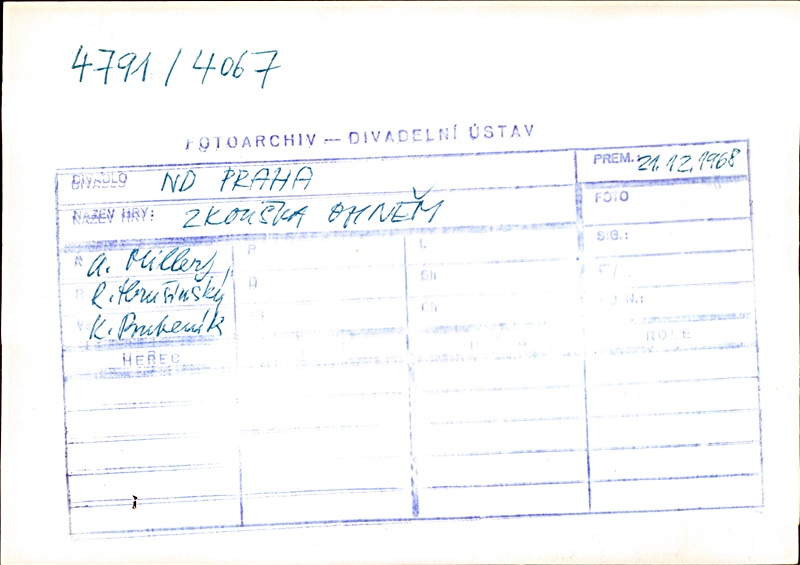 4791 / 4067
FOTOARCHIV — DIVADELNÍ ÚSTAV
DIVADLO ND PRAHA
PREM. 21.12.1968
NÁZEV HRY: ZKOUŠKA OHNĚM
FOTO
A. Miller
SIG.:
R. Hrušínský
K.
HEREC
ROLE